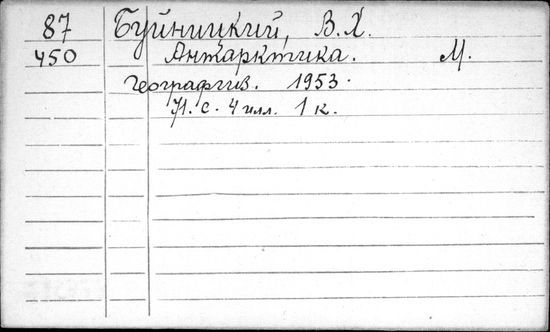 87 Буйницкий, В.Х.
450 Антарктика. М.
Географгиз. 1953.
71. с. 4 илл. 1 к.